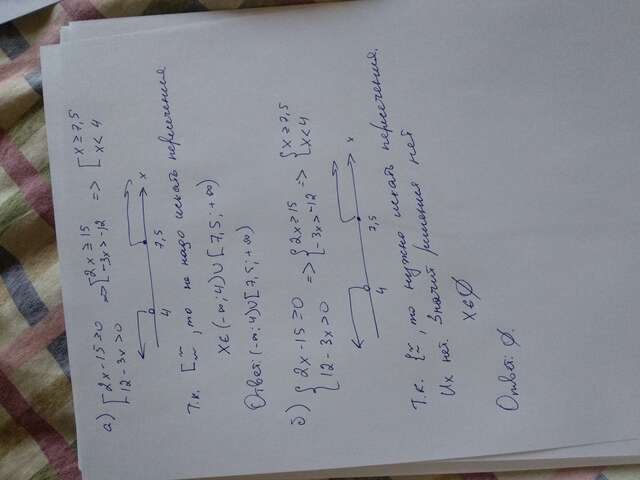 а) [2x-15≥0 => [2x≥15 => [x≥7,5
[12-3x>0 [-3x>-12 [x<4
4 7,5 x
Т.к. [~, то не надо искать пересечения
x∈(-∞;4)∪[7,5;+∞)
Ответ: (-∞;4)∪[7,5;+∞)
б) {2x-15≥0 => {2x≥15 => {x≥7,5
{12-3x>0 {-3x>-12 {x<4
4 7,5 x
Т.к. {~, то нужно искать пересечения.
Их нет. Значит решения нет
x∈∅
Ответ: ∅.